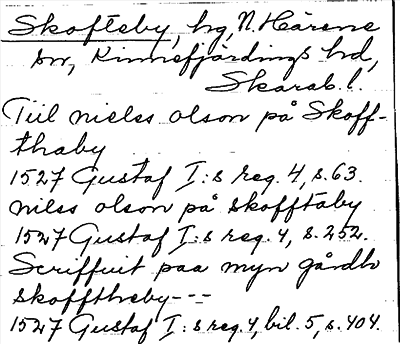 Skofteby, hg, N. Härene
sn, Kinnefjärdings hd,
Skarab. l.
Till nielss olson på Skoff-
thaby
1527 Gustaf I:s reg. 4, s. 63.
nilss olson på skofftaby
1527 Gustaf I:s reg. 4, s. 252.
Scriffuit paa myn gårdh
skofftheby---
1527 Gustaf I:s reg. 4, bil. 5, s. 404.